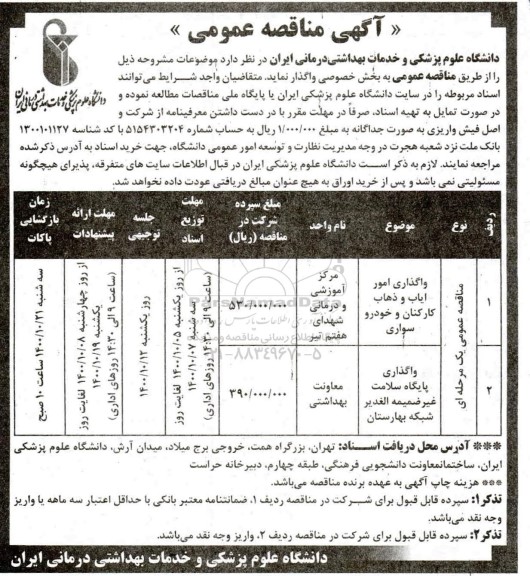 « آگهی مناقصه عمومی »
دانشگاه علوم پزشکی و خدمات بهداشتی درمانی ایران
دانشگاه علوم پزشکی و خدمات بهداشتی‌درمانی ایران در نظر دارد موضوعات مشروحه ذیل
را از طریق مناقصه عمومی به بخش خصوصی واگذار نماید. متقاضیان واجد شرایط می‌توانند
اسناد مربوطه را در سایت دانشگاه علوم پزشکی ایران یا پایگاه ملی مناقصات مطالعه نموده و
در صورت تمایل به تهیه اسناد، صرفاً در مهلت مقرر با در دست داشتن معرفینامه از شرکت و
اصل فیش واریزی به صورت جداگانه به مبلغ ۱/۰۰۰/۰۰۰ ریال به حساب شماره ۵۱۵۴۳۰۳۲۰۴ با کد شناسه ۱۳۰۰۱۰۱۱۲۷
بانک ملت نزد شعبه هجرت در وجه مدیریت نظارت و توسعه امور عمومی دانشگاه، جهت خرید اسناد به آدرس ذکرشده
مراجعه نمایند. لازم به ذکر است دانشگاه علوم پزشکی ایران در قبال اطلاعات سایت های متفرقه، پذیرای هیچگونه
مسئولیتی نمی باشد و پس از خرید اوراق به هیچ عنوان مبالغ دریافتی عودت داده نخواهد شد.
ردیف
نوع
موضوع
نام واحد
مبلغ سپرده شرکت در مناقصه (ریال)
مهلت توزیع اسناد
جلسه توجیهی
مهلت ارائه پیشنهادات
زمان بازگشایی پاکات
۱
مناقصه عمومی یک مرحله ای
واگذاری امور
ایاب و ذهاب
کارکنان و خودرو
سواری
مرکز
آموزشی
و درمانی
شهدای
هفتم تیر
۵۳۰/۰۰۰/۰۰۰
از روز یکشنبه ۱۴۰۰/۱۰/۰۵ لغایت روز
سه شنبه ۱۴۰۰/۱۰/۰۷
(ساعت ۹ الی ۱۴:۳۰ روزهای اداری)
روز یکشنبه ۱۴۰۰/۱۰/۱۲
از روز چهارشنبه ۱۴۰۰/۱۰/۰۸ لغایت روز
یکشنبه ۱۴۰۰/۱۰/۱۹
(ساعت ۹ الی ۱۴:۳۰ روزهای اداری)
سه شنبه ۱۴۰۰/۱۰/۲۱ ساعت ۱۰ صبح
۲
واگذاری
پایگاه سلامت
غیرضمیمه الغدیر
شبکه بهارستان
معاونت
بهداشتی
۳۹۰/۰۰۰/۰۰۰
ParsNamadData
۰۲۱-۸۸۳۴۹۶۷۰-۵
*** آدرس محل دریافت اسناد: تهران، بزرگراه همت، خروجی برج میلاد، میدان آرش، دانشگاه علوم پزشکی
ایران، ساختمانمعاونت دانشجویی فرهنگی، طبقه چهارم، دبیرخانه حراست
*** هزینه چاپ آگهی به عهده برنده مناقصه می‌باشد.
تذکر۱: سپرده قابل قبول برای شرکت در مناقصه ردیف ۱، ضمانتنامه معتبر بانکی با حداقل اعتبار سه ماهه یا واریز
وجه نقد می‌باشد.
تذکر۲: سپرده قابل قبول برای شرکت در مناقصه ردیف ۲، واریز وجه نقد می‌باشد.
دانشگاه علوم پزشکی و خدمات بهداشتی درمانی ایران